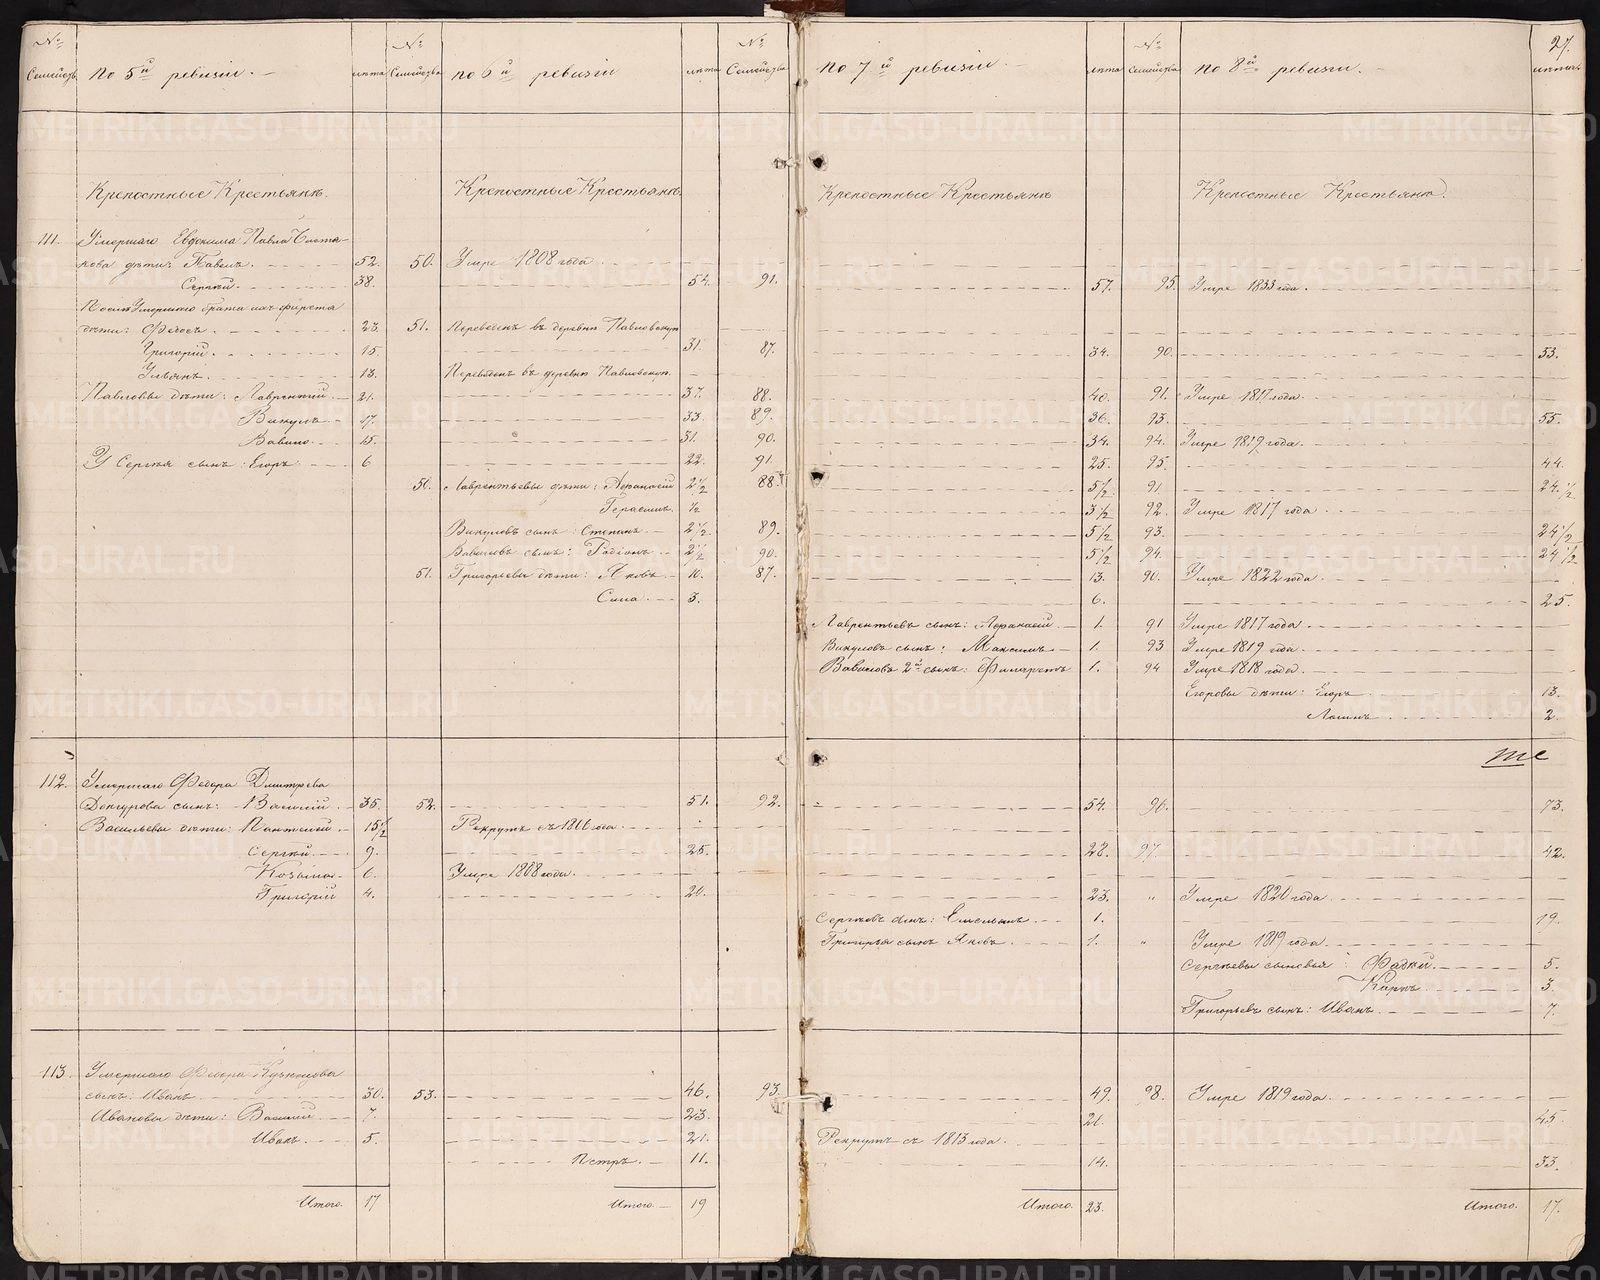 27.
№ Семейства По 5й ревизiи. лѣта № Семейства по 6й ревизiи лѣта № Семейства по 7й ревизiи лѣта № Семейства по 8й ревизiи. лѣта
Крепостные Крестьяне. Крепостные Крестьяне. Крепостные Крестьяне Крепостные Крестьяне.
111. Умершаго Евдокима Павла
дѣти: Павелъ. 52. 50. Умре 1808 года
Сергѣй. 38. 54. 91. 57. 95. Умре 1833 года.
Умершаго брата
дѣти: Федосъ. 23. 51. Переведенъ въ деревню Павловскую
Григорiй. 15. 31. 87. 34. 90. 53.
Ульянъ. 13. Переведенъ въ деревню Павловскую
Павловы дѣти: Лаврентiй 21. 37. 88. 40. 91. Умре 1817 года.
Викулъ 17. 33. 89. 36. 93. 55.
Вавило 15. 31. 90. 34. 94. Умре 1819 года.
У Сергѣя сынъ: Егоръ 6 22. 91. 25. 95. 44.
50. Лаврентьевы дѣти: Афанасiй 2 1/2 88. 5 1/2 91. 24. 1/2
Герасимъ. 1/2 3 1/2 92. Умре 1817 года.
Викуловъ сынъ: Степанъ 2 1/2 89. 5 1/2 93. 24 1/2
Вавиловъ сынъ: Родiонъ 2 1/2 90. 5 1/2 94. 24 1/2
51. Григорьевы дѣти: Яковъ 10. 87. 13. 90. Умре 1822 года.
Сила 3. 6. 25.
Лаврентьевъ сынъ: Афанасiй 1. 91 Умре 1817 года.
Викуловъ сынъ: Максимъ 1. 93 Умре 1819 года.
Вавиловъ 2й сынъ: Филаретъ 1. 94 Умре 1818 года.
Егоровы дѣти: Егоръ 13.
Логинъ 2.
112. Умершаго Федора Дмитрева
сынъ: Василiй 35. 52. 51. 92. 54. 96. 73.
Васильевы дѣти: Пантелей 15 1/2 Рекрутъ съ 1806 года.
Сергѣй 9. 25. 28. 97. 42.
Козьма 6. Умре 1808 года.
Григорiй 4. 20. 23. " Умре 1820 года
Сергѣевъ сынъ: Емельянъ 1. 19.
Григорьевъ сынъ Яковъ. 1. " Умре 1819 года.
Сергѣевы сыновья: Фадѣй. 5.
Карпъ 3.
Григорьевъ сынъ: Иванъ. 7.
113. Умершаго Федора Кузнецова
сынъ: Иванъ 30. 53. 46. 93. 49. 98. Умре 1819 года.
Ивановы дѣти: Василiй 7. 23. 26. 45.
Иванъ 5. 21. Рекрутъ съ 1813 года.
Петръ. 11. 14. 33.
Итого. 17 Итого. 19 Итого. 23. Итого. 17.
METRIKI.GASO-URAL.RU